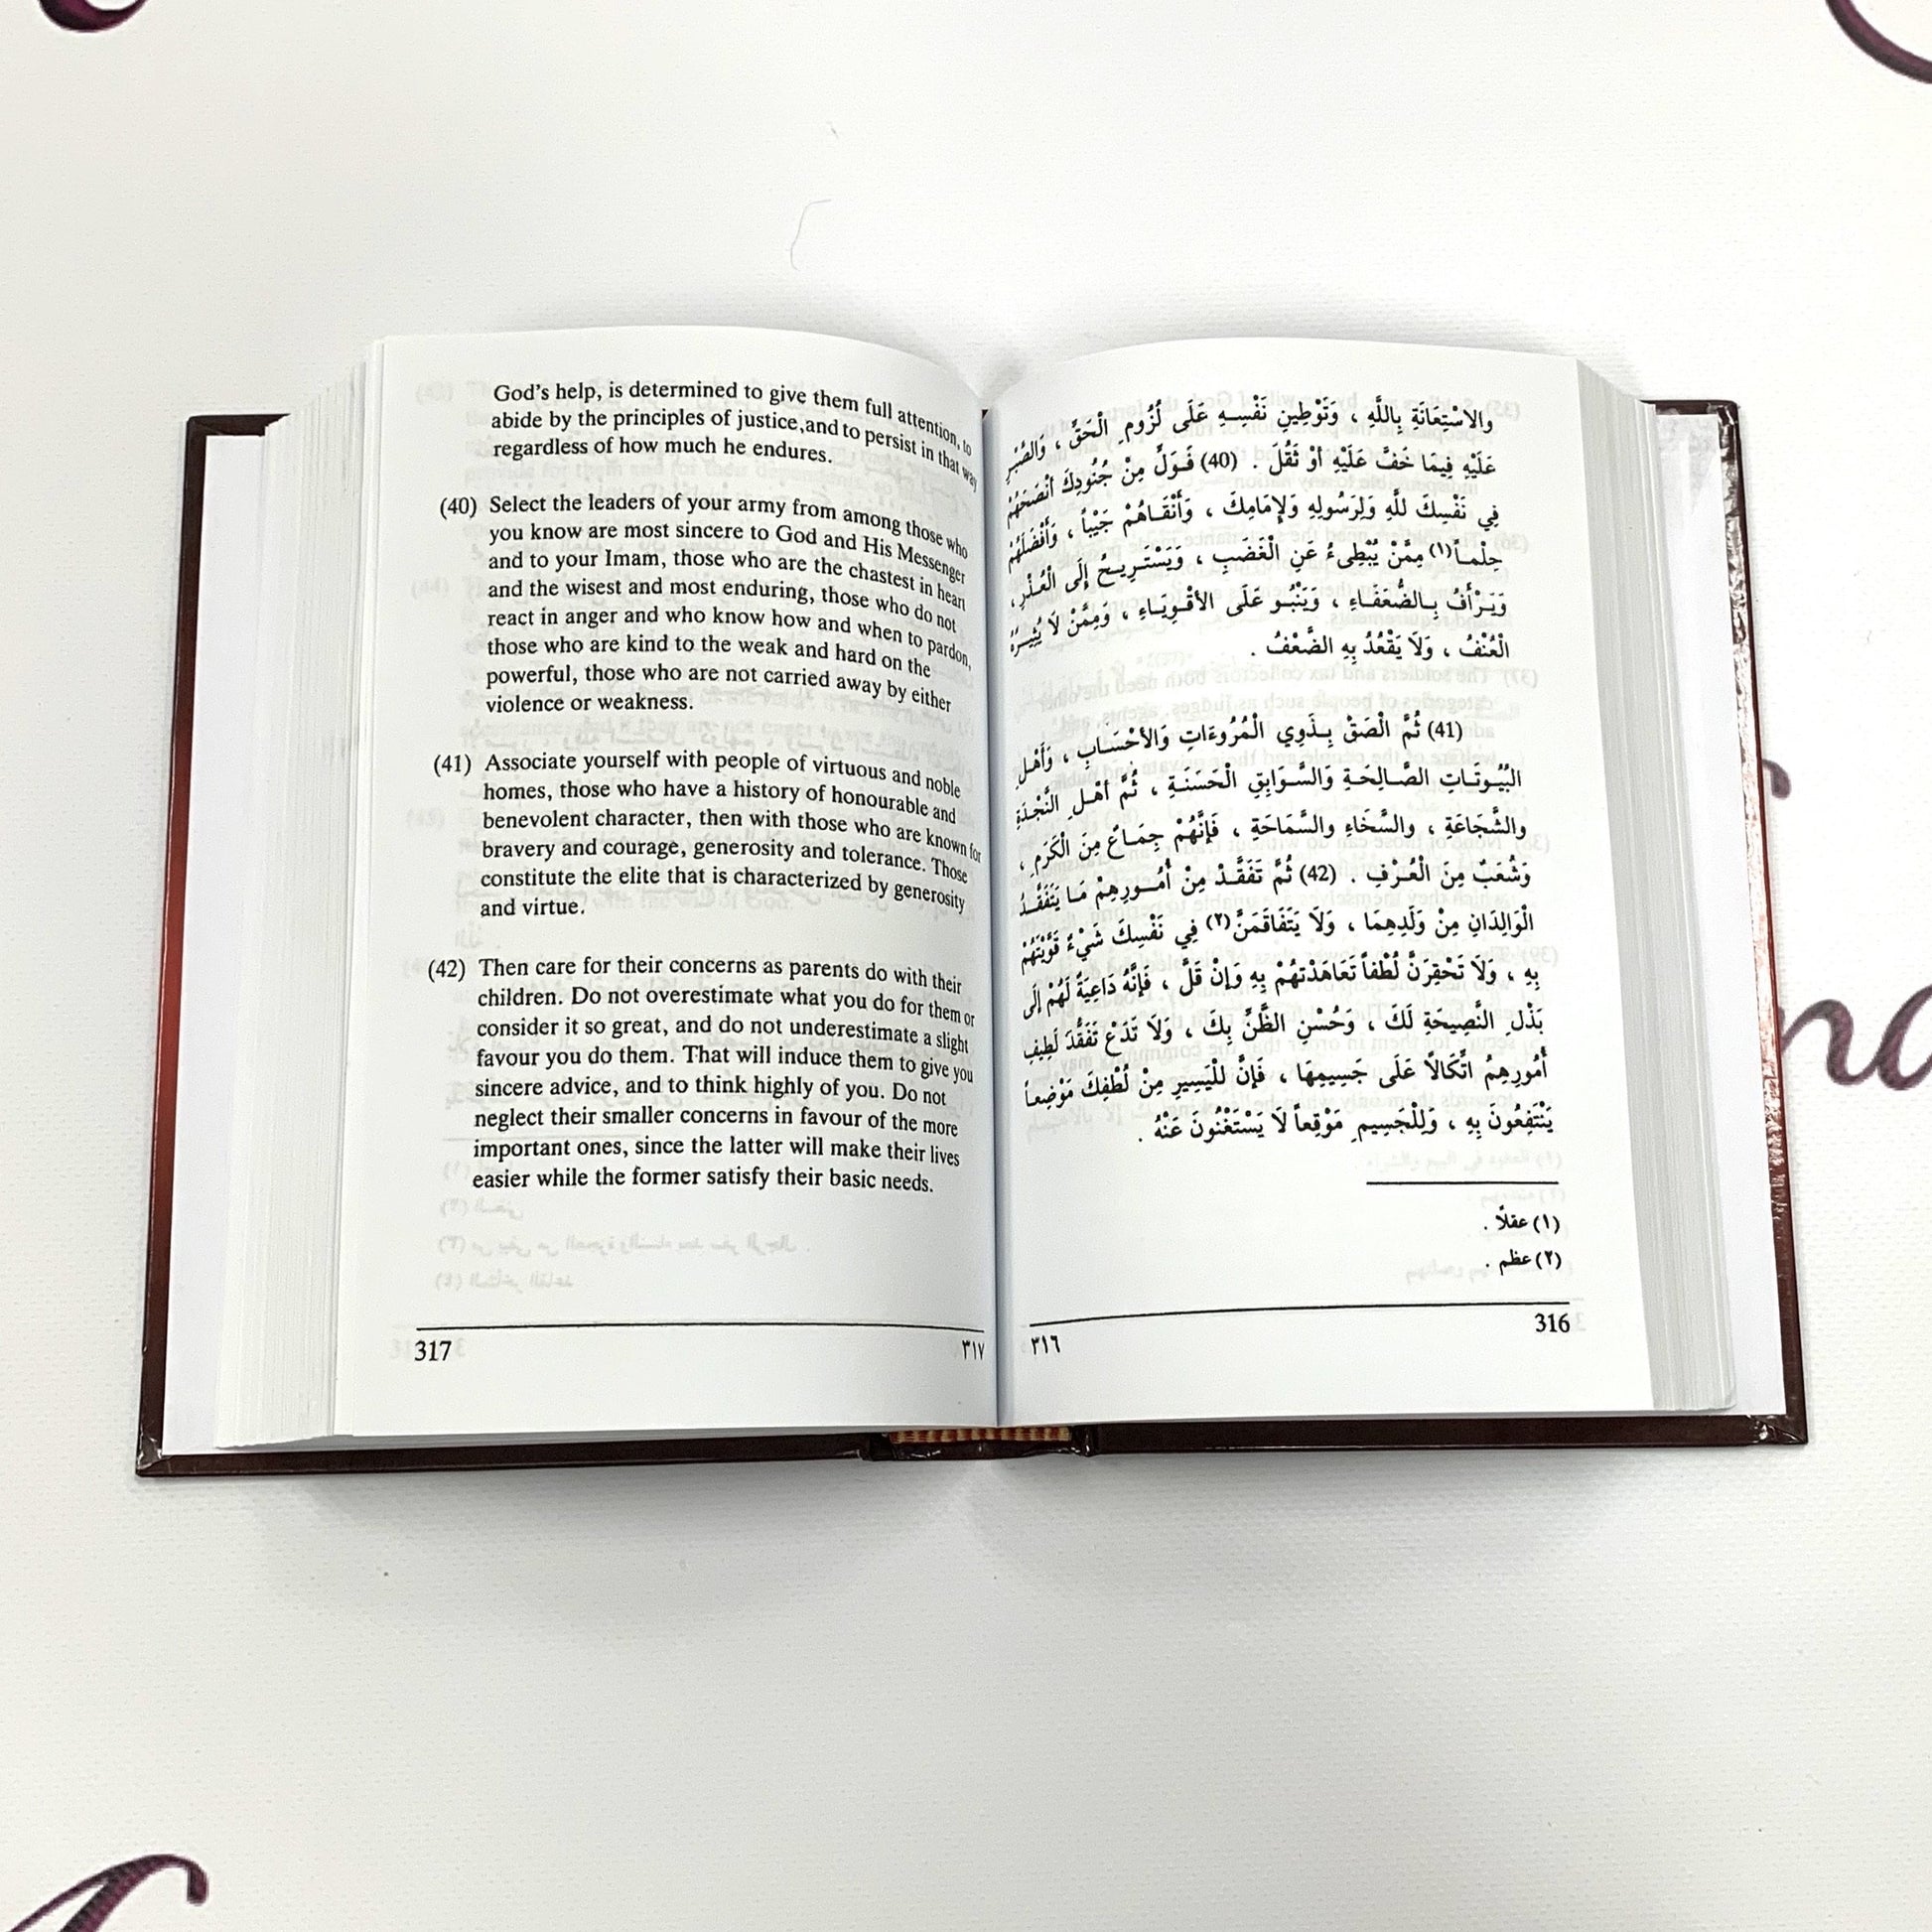 والاسْتِعَانَةِ بِاللَّهِ ، وَتَوْطِينِ نَفْسِهِ عَلَى لُزُومِ الْحَقِّ ، وَالصَّبْرِ
عَلَيْهِ فِيمَا خَفَّ عَلَيْهِ أَوْ ثَقُلَ . (40) فَوَلِّ مِنْ جُنُودِكَ أَنْصَحَهُمْ
فِي نَفْسِكَ لِلَّهِ وَلِرَسُولِهِ وَلِإمَامِكَ ، وَأَنْقَاهُمْ جَيْباً ، وَأَفْضَلَهُمْ
حِلْماً(١) مِمَّنْ يُبْطِىءُ عَنِ الْغَضَبِ ، وَيَسْتَرِيحُ إِلَى الْعُذْرِ ،
وَيَرْأَفُ بِالضُّعَفَاءِ ، وَيَنْبُو عَلَى الأَقْوِيَاءِ ، وَمِمَّنْ لَا يُثِيرُهُ
الْعُنْفُ ، وَلَا يَقْعُدُ بِهِ الضَّعْفُ .
(41) ثُمَّ الْصَقْ بِذَوِي الْمُرُوءَاتِ وَالأَحْسَابِ ، وَأَهْلِ
البُيُوتَاتِ الصَّالِحَةِ وَالسَّوَابِقِ الْحَسَنَةِ ، ثُمَّ أَهْلِ النَّجْدَةِ
والشَّجَاعَةِ ، والسَّخَاءِ والسَّمَاحَةِ ، فَإِنَّهُمْ جِمَاعٌ مِنَ الْكَرَمِ ،
وَشُعَبٌ مِنَ الْعُرْفِ . (42) ثُمَّ تَفَقَّدْ مِنْ أُمُورِهِمْ مَا يَتَفَقَّدُ
الْوَالِدَانِ مِنْ وَلَدِهِمَا ، وَلَا يَتَفَاقَمَنَّ(٢) فِي نَفْسِكَ شَيْءٌ قَوَّيْتَهُمْ
بِهِ ، وَلَا تَحْقِرَنَّ لُطْفاً تَعَاهَدْتَهُمْ بِهِ وَإِنْ قَلَّ ، فَإِنَّهُ دَاعِيَةٌ لَهُمْ إِلَى
بَذْلِ النَّصِيحَةِ لَكَ ، وَحُسْنِ الظَّنِّ بِكَ ، وَلَا تَدَعْ تَفَقُّدَ لَطِيفِ
أُمُورِهِمُ اتِّكَالًا عَلَى جَسِيمِهَا ، فَإِنَّ لِلْيَسِيرِ مِنْ لُطْفِكَ مَوْضِعاً
يَنْتَفِعُونَ بِهِ ، وَلِلْجَسِيمِ مَوْقِعاً لَا يَسْتَغْنُونَ عَنْهُ .
(١) عقلاً .
(٢) عظم .
٣١٦ 316
God's help, is determined to give them full attention, to
abide by the principles of justice,and to persist in that way
regardless of how much he endures.
(40) Select the leaders of your army from among those who
you know are most sincere to God and His Messenger
and to your Imam, those who are the chastest in heart
and the wisest and most enduring, those who do not
react in anger and who know how and when to pardon,
those who are kind to the weak and hard on the
powerful, those who are not carried away by either
violence or weakness.
(41) Associate yourself with people of virtuous and noble
homes, those who have a history of honourable and
benevolent character, then with those who are known for
bravery and courage, generosity and tolerance. Those
constitute the elite that is characterized by generosity
and virtue.
(42) Then care for their concerns as parents do with their
children. Do not overestimate what you do for them or
consider it so great, and do not underestimate a slight
favour you do them. That will induce them to give you
sincere advice, and to think highly of you. Do not
neglect their smaller concerns in favour of the more
important ones, since the latter will make their lives
easier while the former satisfy their basic needs.
317 ٣١٧